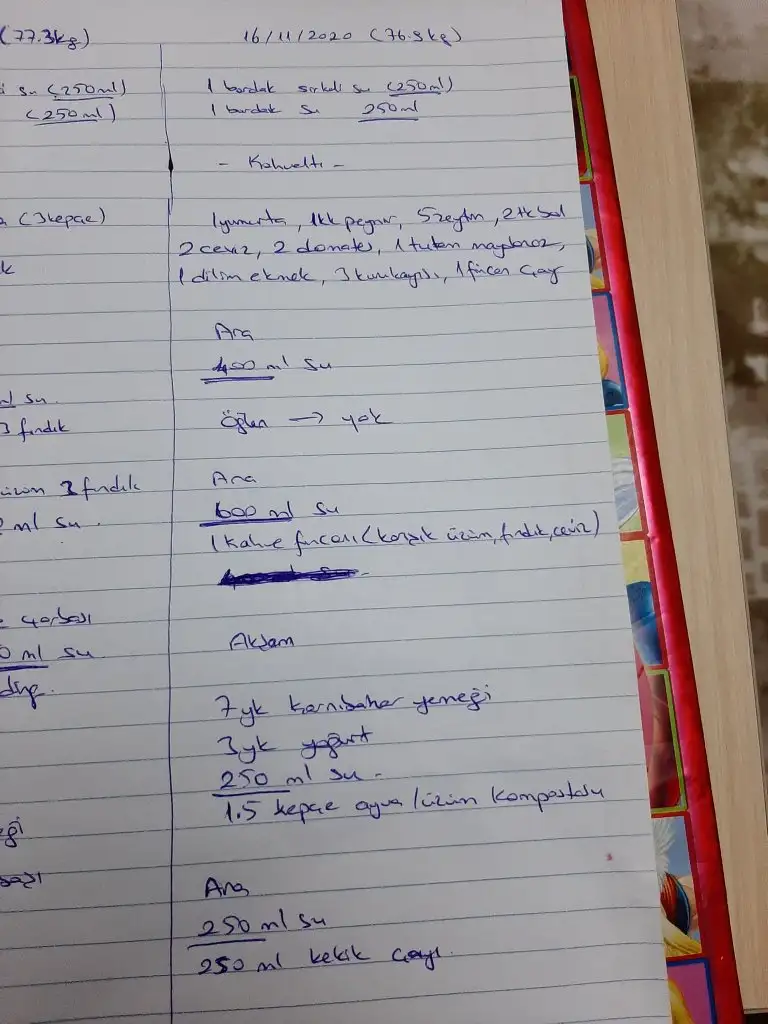 (77.3kg)
su (250ml)
(250ml)
(3kepçe)
k
su.
3 fındık
üzüm 3 fındık
ml su.
çorbası
0 ml su
ği
16/11/2020 (76.9kg)
1 bardak sirkeli su (250ml)
1 bardak su 250ml
- Kahvaltı -
1 yumurta, 1kk peynir, 5 zeytin, 2 tk bal
2 ceviz, 2 domates, 1 tutam maydanoz,
1 dilim ekmek, 3 kuru kayısı, 1 fincan çay
Ara
400 ml su
Öğlen → yok
Ara
600 ml su
1 Kahve fincanı (karışık üzüm, fındık, ceviz)
Akşam
7 yk karnıbahar yemeği
3 yk yoğurt
250 ml su.
1.5 kepçe ayva / üzüm kompostosu
Ara
250 ml su
250 ml kekik çayı.